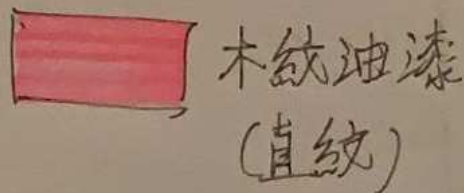 木紋油漆
(直紋)